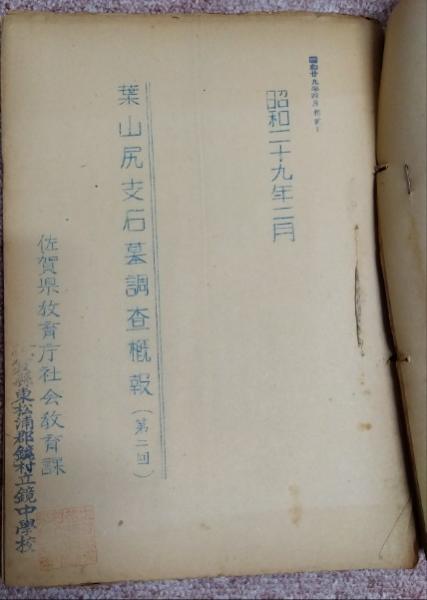 昭和二十九年二月
葉山尻支石墓調査概報（第二回）
佐賀県教育庁社会教育課
縣東松浦郡鏡村立鏡中學校